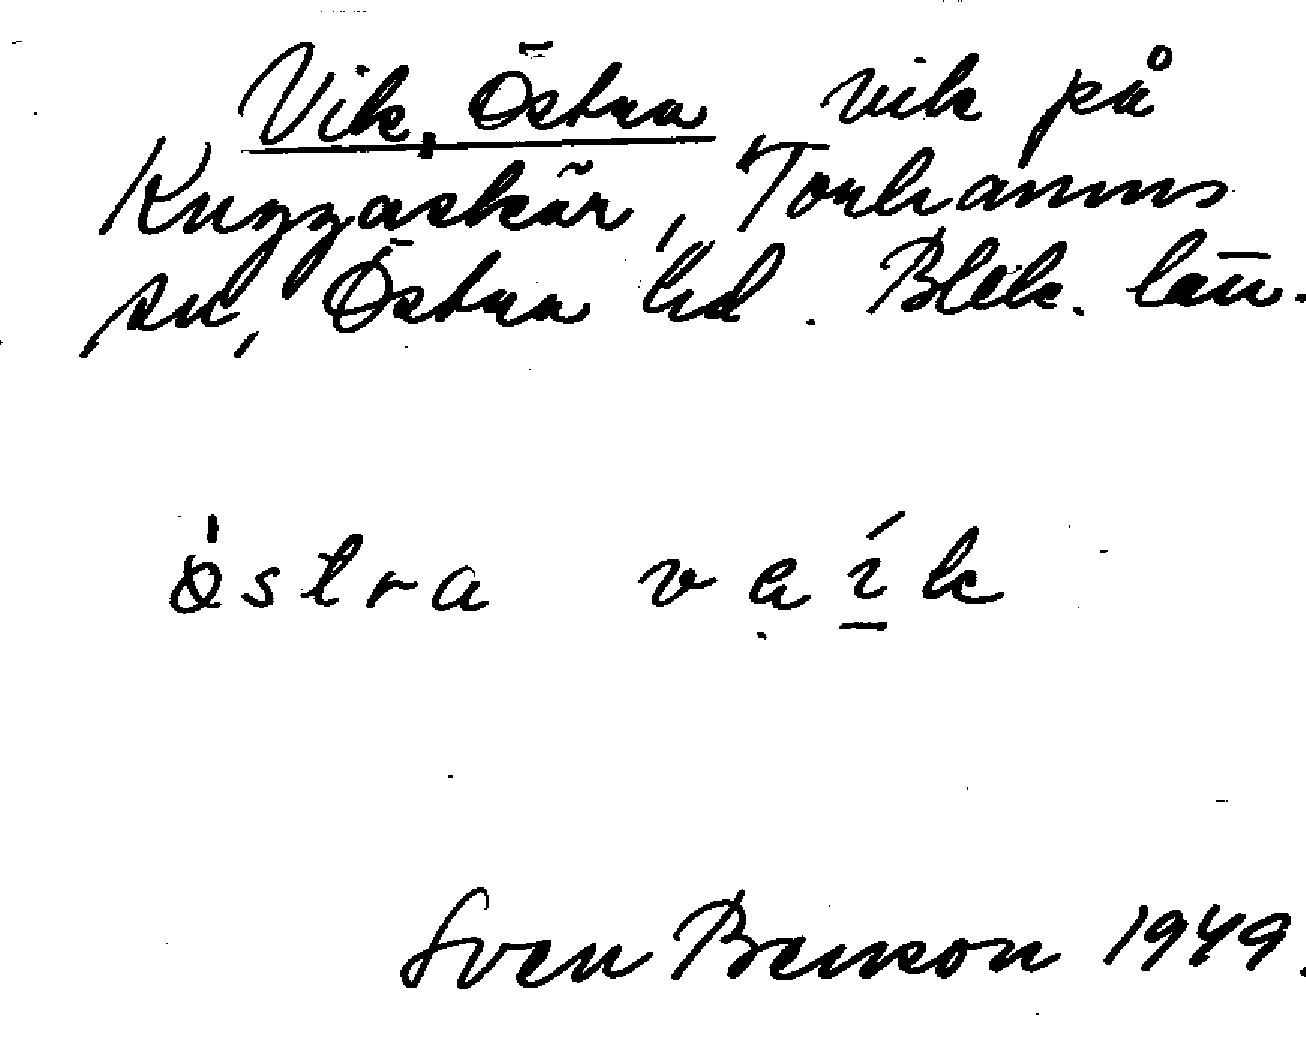 Vik, Östra vik på
Kuggaskär, Torhamns
sn, Östra hd. Blek. län.
östra vaík
Sven Benson 1949.